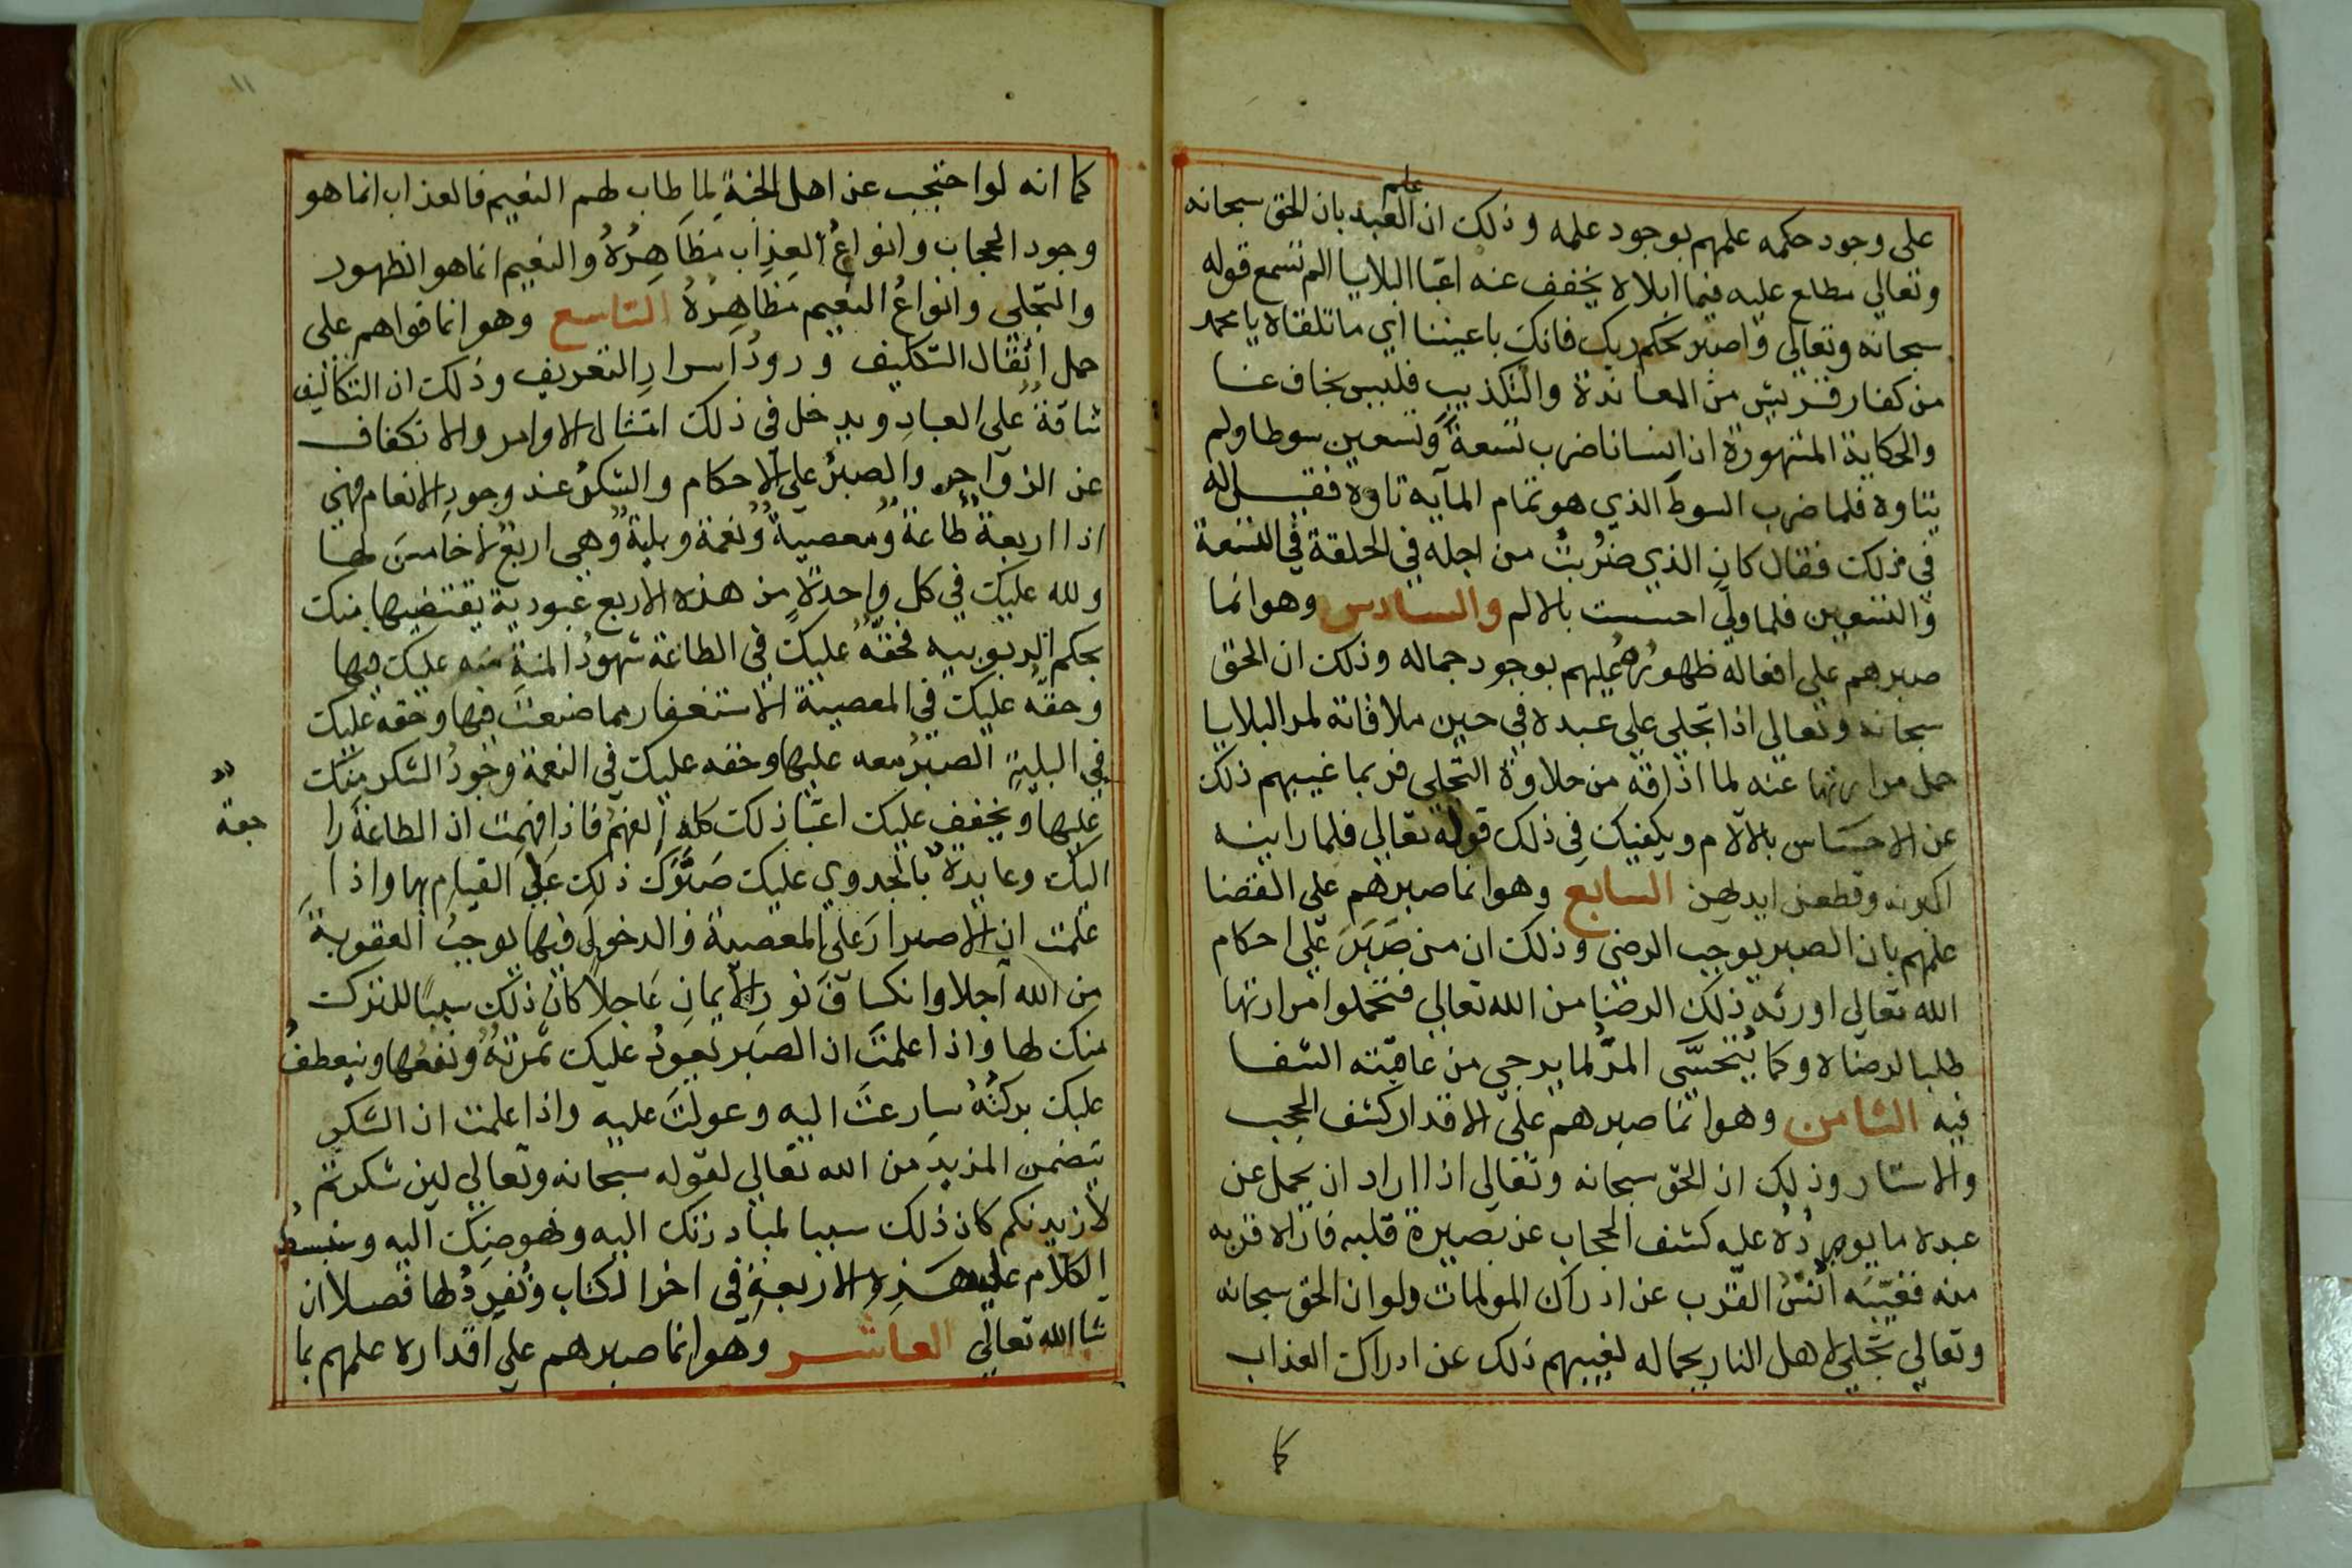 على وجود حكمه علمهم بوجود علمه وذلك ان علم العبد بان الحق سبحانه
وتعالي مطلع عليه فيما ابلاه يخفف عنه اعبا البلايا الم تسمع قوله
سبحانه وتعالي واصبر لحكم ربك فانك باعيننا اي ما تلقاه يا محمد
من كفار قريش من المعاندة والتكذيب فليس بخاف عنا
والحكاية المشهورة ان انسانا ضرب تسعة وتسعين سوطا ولم
يتاوه فلما ضرب السوط الذي هو تمام المآيه تاوه فقيل له
في ذلك فقال كان الذي ضُربتُ من اجله في الحلقة في التسعة
والتسعين فلما ولي احسست بالالم والسادس وهو انما
صبرهم على افعاله ظهورُه عليهم بوجود جماله وذلك ان الحق
سبحانه وتعالى اذا تجلى على عبده في حين ملاقاته لمر البلايا
حمل مرارتها عنه لما اذاقه من حلاوة التجلى فربما غيبهم ذلك
عن الاحساس بالآلام ويكفيك في ذلك قوله تعالي فلما راينه
اكبرنه وقطعن ايديهن السابع وهو انما صبرهم على القضا
علمهم بان الصبر يوجب الرضى وذلك ان من صَبَرَ على احكام
الله تعالى اورثه ذلك الرضا من الله تعالي فتحملوا مرارتها
طلبا لرضاه وكما يُتحسَّى المرُّ لما يرجى من عاقبته الشفا
فيه الثامن وهو انما صبرهم على الاقدار كشف الحجب
والاستار وذلك ان الحق سبحانه وتعالى اذا اراد ان يحمل عن
عبده ما يوردُه عليه كشف الحجاب عن بصيرة قلبه فاراه قربه
منه فغيّبه اُنسُ القرب عن ادراك المولمات ولو ان الحق سبحانه
وتعالي تجلى لاهل النار بجماله لغيبهم ذلك عن ادراك العذاب
كما
١١
كما انه لو احتجب عن اهل الجنة لما طاب لهم النعيم فالعذاب انما هو
وجود الحجاب وانواعُ العذاب مظاهِرُهُ والنعيم انما هو الظهور
والتجلى وانواعُ النعيم مظاهِرُهُ التاسع وهو انما قواهم على
حمل اثقال التكليف ورودُ اسرارِ التعريف وذلك ان التكاليف
شاقةٌ على العبادِ ويدخل في ذلك امتثال الاوامر والانكفاف
عن الزواجر والصبرُ على الاحكام والشكرُ عند وجود الانعام فهي
اذا اربعة طاعةٌ ومعصيةٌ ونعمة وبليةٌ وهى اربعٌ لا خامسَ لها
ولله عليك في كل واحدةٍ من هذه الاربع عبودية يقتضيها منك
بحكم الربوبيه فحقُّه عليك في الطاعة شهودُ المنةِ منه عليك فيها
وحقُّه عليك في المعصية الاستغفار مما صنعتَ فيها وحقه عليك
في البليةِ الصبرُ معه عليها وحقه عليك في النعمة وجودُ الشكر منك
عليها ويخفف عليك اعبا ذلك كله الفهمُ فاذا فهمت ان الطاعةَ را
جعة
اليك وعايدة بالجدوي عليك صَبَّرَكَ ذلك على القيام بها واذا
علمت ان الاصرارَ على المعصية والدخولَ فيها يوجبُ العقوبةَ
من الله آجلا وانكسافَ نورِ الايمان عَاجلاً كان ذلك سببًا للترك
منك لها واذا علمتَ ان الصبر تعودُ عليك ثمرتهُ ونفعُها وينعطفُ
عليك بركتُهُ سارعتَ اليه وعولتَ عليه واذا علمت ان الشكر
يتضمن المزيد من الله تعالي لقوله سبحانه وتعالي لين شكرتم
لازيدنكم كان ذلك سببا لمبادرتك اليه ونهوضِك اليه وسنبسطُ
الكلام على هذه الاربعةِ في اخر الكتاب ونُفرِدُ لها فصلا ان
شا الله تعالي العاشر وهو انما صبرهم على اقداره علمهم بما